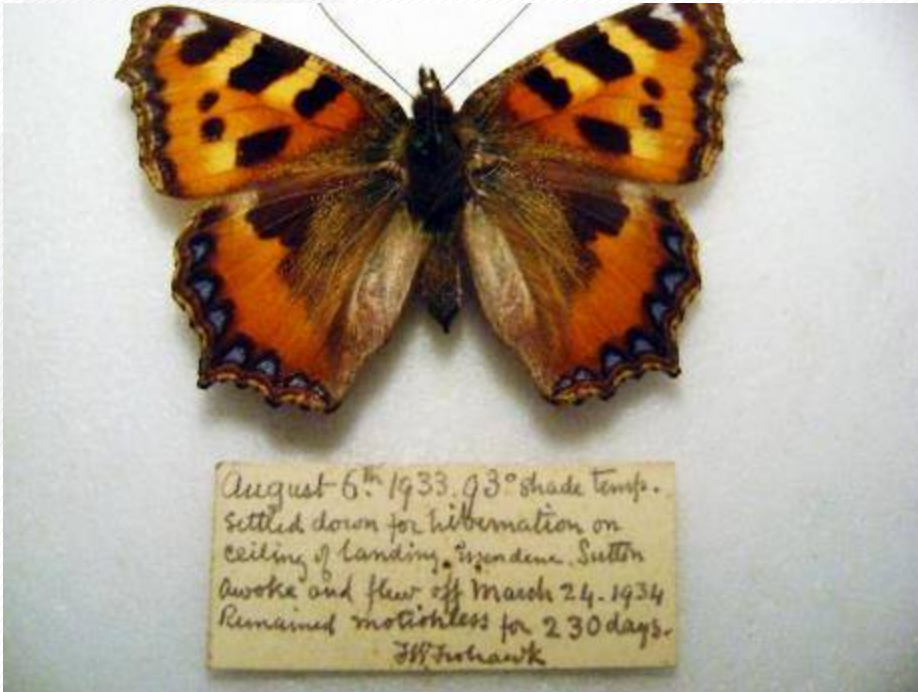 August 6th 1933. 93° shade temp.
settled down for hibernation on
ceiling of landing, Essendene. Sutton
awoke and flew off March 24. 1934
Remained motionless for 230 days.
FW Frohawk